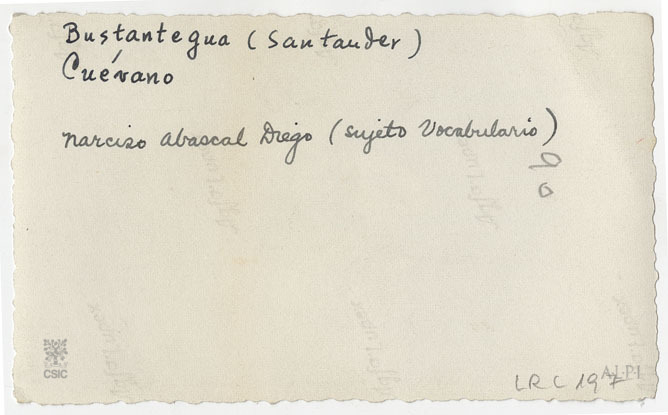 Bustantegua (Santander)
Cuévano
Narciso Abascal Diego (sujeto Vocabulario)
CSIC
A·L·P·I
LRC 197